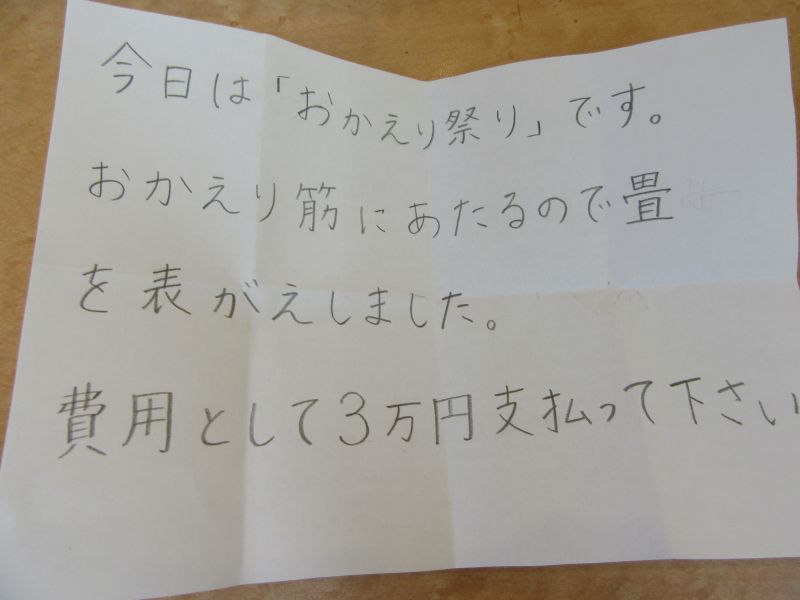 今日は「おかえり祭り」です。
おかえり筋にあたるので畳
を表がえしました。
費用として3万円支払って下さい